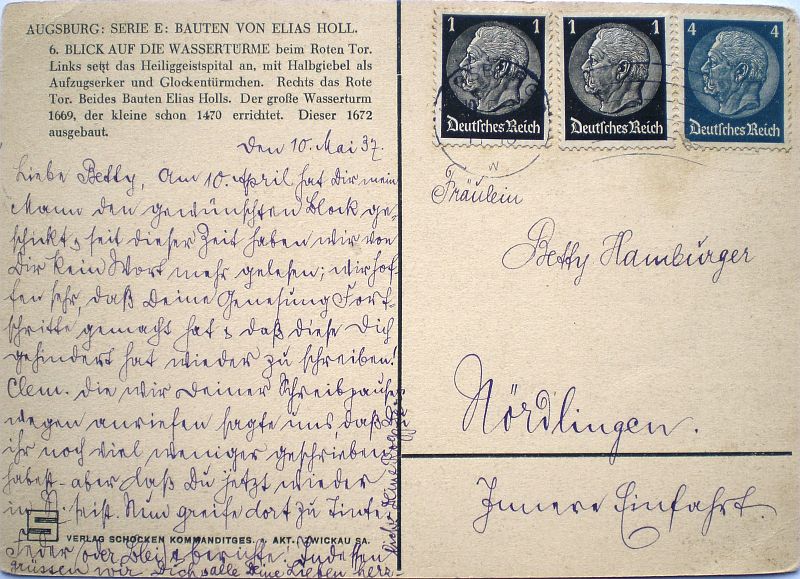 AUGSBURG: SERIE E: BAUTEN VON ELIAS HOLL.
6. BLICK AUF DIE WASSERTÜRME beim Roten Tor.
Links setzt das Heiliggeistspital an, mit Halbgiebel als
Aufzugserker und Glockentürmchen. Rechts das Rote
Tor. Beides Bauten Elias Holls. Der große Wasserturm
1669, der kleine schon 1470 errichtet. Dieser 1672
ausgebaut.
Den 10. Mai 37.
Liebe Betty, Am 10. April hat Dir mein
Mann den gewünschten Block ge-
schickt & seit dieser Zeit haben wir von
Dir kein Wort mehr gelesen; wir hof-
fen sehr, daß Deine Genesung Fort-
schritte gemacht hat & daß diese Dich
gehindert hat wieder zu schreiben!
Clem. die wir Deiner Schreibpause
wegen anriefen sagte uns, daß Du
ihr noch viel weniger geschrieben
habest - aber daß Du jetzt wieder
in N. seist. Nun greife dort zu Tinte
Feder (oder Blei) & berichte! Indessen
grüssen wir Dich & alle Deine Lieben herz-
lichst Deine
VERLAG SCHOCKEN KOMMANDITGES. a. AKT., ZWICKAU SA.
1 1 4
Deutsches Reich Deutsches Reich Deutsches Reich
Fräulein
Betty Hamburger
Nördlingen.
Innere Einfahrt.